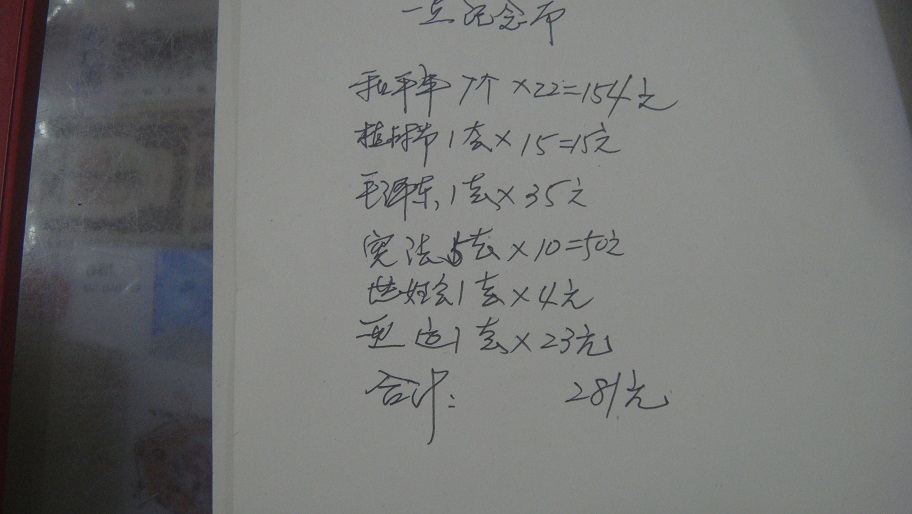 一点纪念币
和平年 7个×22=154元
植树节 1套×15=15元
毛泽东 1套×35元
宪法 5套×10=50元
世妇会 1套×4元
亚运 1套×23元
合计: 281元